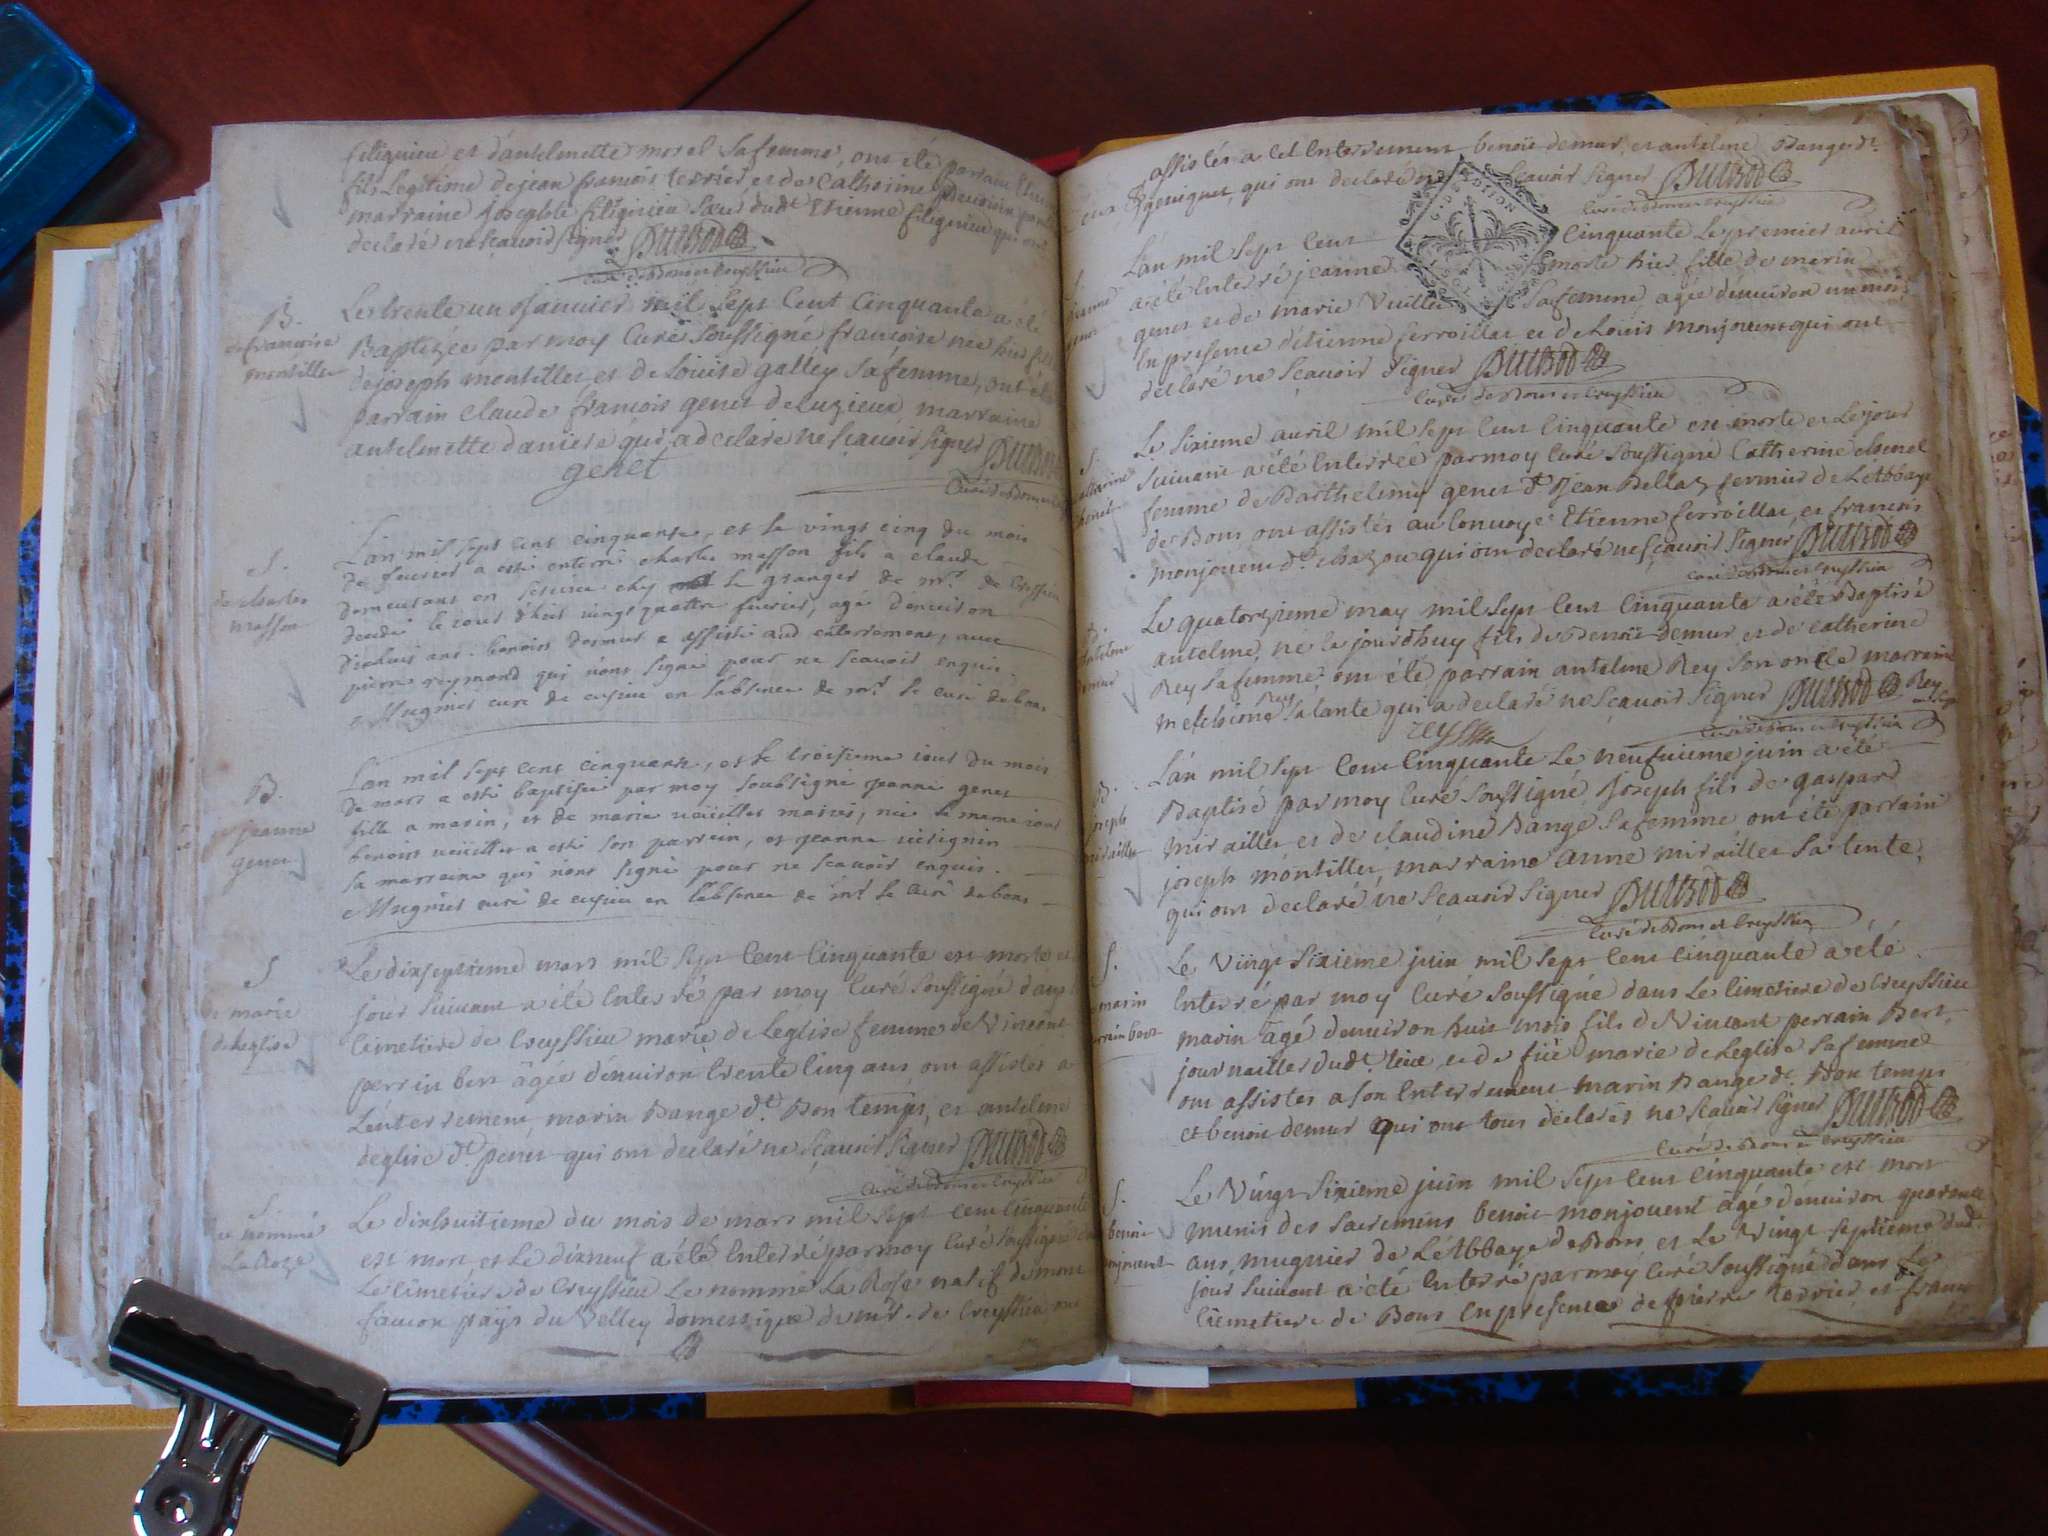 filiguieu et d'antelmette morel sa femme, ont été parrain
fils Legitime de jean francois terrier et de Catherine
marraine josephte filiguieu sœur dudt Etienne filiguieu qui ont
declaré ne scauoir signer Dutrod
Curé de Bons et Creyssieu
B.
de francoise
montillet
Le trente un Janvier mil sept Cent Cinquante a été
Baptizée par moy Curé soussigné francoise née hier fille
de joseph montillet et de Louise gallay sa femme, ont été
parrain claude francois genet de Luzieux marraine
antelmette daniere qui a declaré ne scauoir signer
genet
Curé de Bons
S.
de charles
masson
L'an mil sept cent cinquante, et le vingt cinq du mois
de feurier a esté enterré charles masson fils a claude
demeurant en seruice chez le granger de mr. de Cressieu
decedé le jour d'hier vingt quatre feurier, agé d'enuiron
dixhuit ans. benoist demur a assisté aud enterrement, auec
pierre reymond qui n'ont signé pour ne scauoir enquis.
Mugnier curé de cusieu en l'absence de mr. le curé de bons
B.
de jeanne
genet
L'an mil sept cent cinquante, et le troisieme jour du mois
de mars a esté baptisée par moy soubsigné jeanne genet
fille a marin, et de marie veüillet mariés, née le meme jour
benoist veüillet a esté son parrein, et jeanne
sa marreine qui n'ont signé pour ne scauoir enquis.
Mugnier curé de cusieu en l'absence de mr. le curé de bons
S
de marie
de Leglise
Le dixseptieme mars mil sept Cent Cinquante est morte et
jour suiuant a été Enterré par moy Curé soussigné dans
Cimetiere de Creyssieu marie de Leglise femme de Vincent
perrin bert âgée d'enuiron trente Cinq ans, ont assistés a
L'enterrement marin Bange dt. Bon temps, et antelme
deglise dt. penet qui ont declaré ne scauoir signer Dutrod
Curé de Bons et Creyssieu
S.
du nommé
La Roze
Le dixhuitieme du mois de mars mil sept cent Cinquante
est mort et Le dixneuf a été Enterré par moy Curé soussigné
Le Cimetiere de Creyssieu Le nommé La Rose natif de mont
faucon païs du Velley domestique de mr. de Creyssieu
assistés a cet Enterrement benoit demur, et antelme Bange dt.
qui ont declaré scauoir signer Dutrod
Curé de Bons et Creyssieu
S.
jeanne
genet
L'an mil sept Cent Cinquante Le premier avril
a été Enterré jeanne morte hier fille de marin
genet et de marie Vuillet sa femme, agée d'enuiron un mois
En presence d'etienne ferroillat et de Louis monjouent qui ont
declaré ne scauoir signer Dutrod
Curé de Bons et Creyssieu
S.
Catherine
Le sixieme auril mil sept Cent Cinquante est morte et Le jour
suiuant a été Enterrée par moy Curé soussigné Catherine
femme de Barthelemy genet dt. Jean Bellaz fermier de L'Abbaye
de Bons ont assistés au Conuoy Etienne ferroillat, et francois
monjouent dt. chazou qui ont declaré ne scauoir signer Dutrod
Curé de Bons et Creyssieu
B.
antelme
demur
Le quatorzieme may mil sept Cent Cinquante a été Baptisé
antelme, né le jourdhuy fils de Benoit demur et de Catherine
Rey sa femme, ont été parrain antelme Rey son oncle marraine
melchione Rey sa tante qui a declaré ne scauoir signer Dutrod Rey
Curé de Bons et Creyssieu
B.
joseph
mirailler
L'an mil sept Cent Cinquante Le neufuieme juin a été
Baptisé par moy Curé soussigné Joseph fils de gaspard
mirailler et de claudine Bange sa femme ont été parrain
joseph montillet, marraine anne mirailler sa tente,
qui ont declaré ne scauoir signer Dutrod
Curé de Bons et Creyssieu
S.
marin
perrain bert
Le Vingt sixieme juin mil sept Cent Cinquante a été
Enterré par moy Curé soussigné dans Le Cimetiere de Creyssieu
marin âgé d'enuiron huit mois fils de Vincent perrain Bert,
journailler dudt. lieu et de füe marie de Leglise sa femme
ont assistés a son Enterrement marin Bange dt. Bon temps
et benoit demur qui ont tous declarés ne scauoir signer Dutrod
Curé de Bons et Creyssieu
S.
benoit
monjouent
Le Vingt sixieme juin mil sept Cent Cinquante est mort
munis des sacremens benoit monjouent âgé d'enuiron quarante
ans, mugnier de L'Abbaye de Bons et Le Vingt septieme dudt.
jour suiuant a été Enterré par moy Curé soussigné dans Le
Cimetiere de Bons En presence de pierre terrier, et